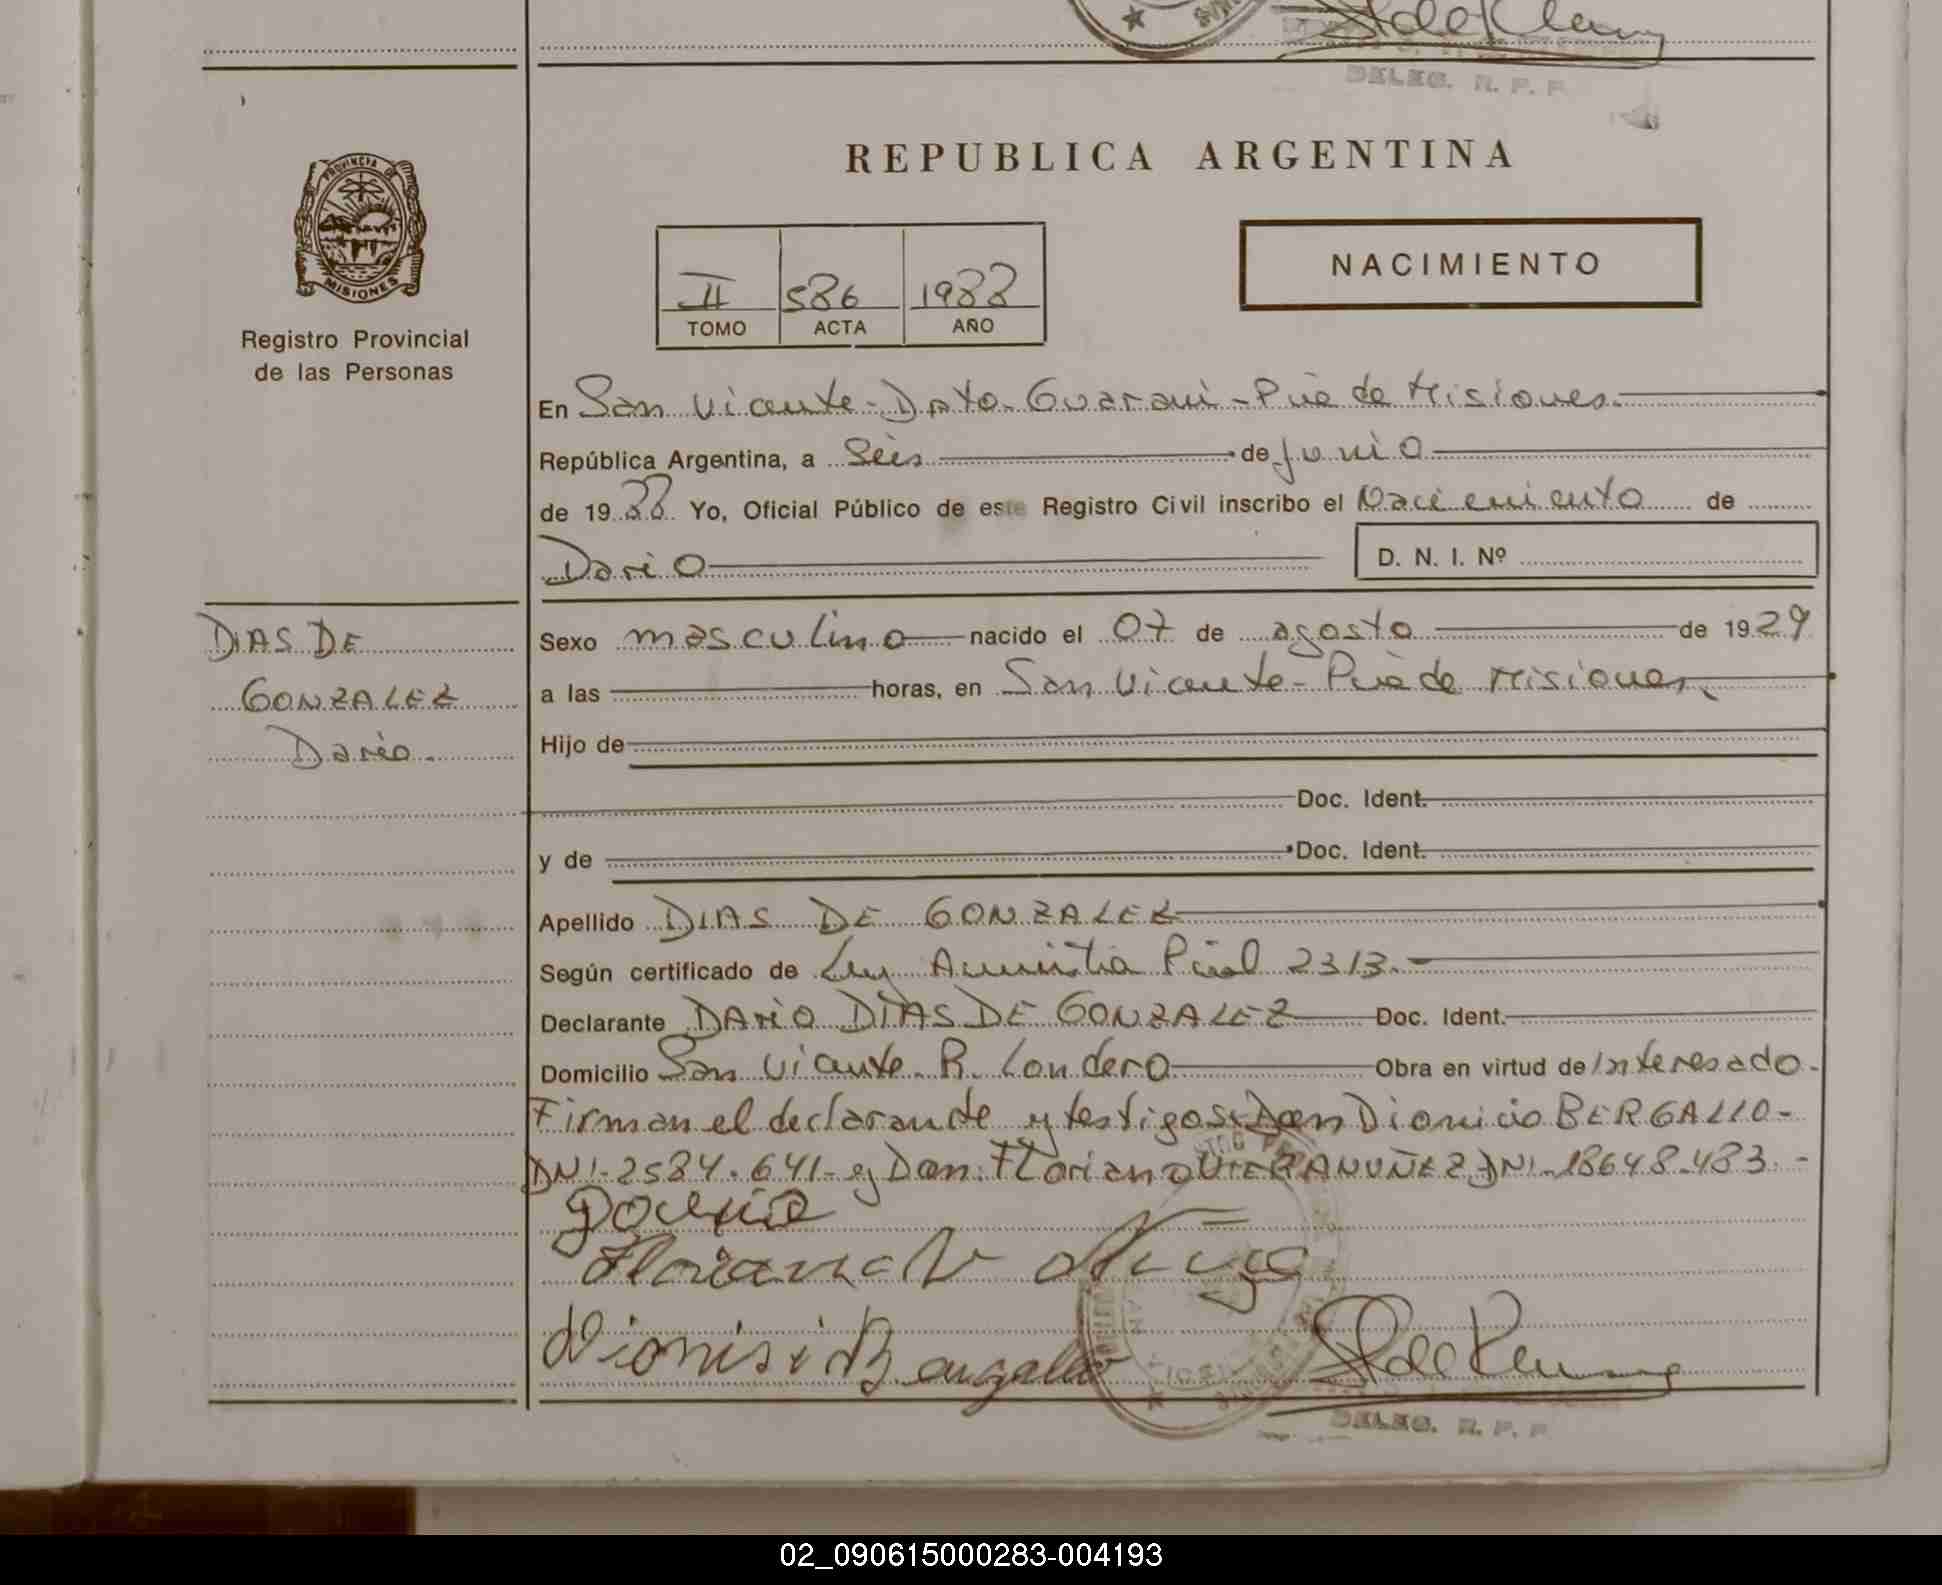 DELEG. R. P. P.
PROVINCIA DE
MISIONES
Registro Provincial
de las Personas
REPUBLICA ARGENTINA
II 586 1988
TOMO ACTA AÑO
NACIMIENTO
En San Vicente - Dpto. Guarani - Pcia de Misiones.
República Argentina, a Seis de junio
de 1988 Yo, Oficial Público de este Registro Civil inscribo el Nacimiento de
Dario
D. N. I. Nº
DIAS DE
GONZALEZ
Dario.
Sexo masculino nacido el 07 de agosto de 1929
a las horas, en San Vicente - Pcia de Misiones.
Hijo de
Doc. Ident.
y de Doc. Ident.
Apellido DIAS DE GONZALEZ
Según certificado de Ley Amnistia Pcial 2313.-
Declarante DARIO DIAS DE GONZALEZ Doc. Ident.
Domicilio San Vicente - B. Londero Obra en virtud de Interesado.
Firman el declarante y testigos Don Dionicio BERGALLO-
DNI-2584.641- y Don: Floriano VIERA NUÑEZ DNI-18648.483.-
Dionisio Bergallo
DELEG. R. P. P.
02_090615000283-004193